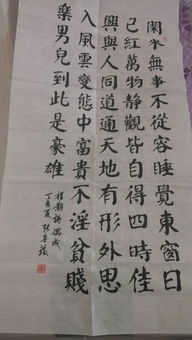 閑来無事不從容睡覺東窗日
已紅萬物靜觀皆自得四時佳
興與人同道通天地有形外思
入風雲變態中富貴不淫貧賤
樂男兒到此是豪雄
程顥詩偶成
丁酉夏